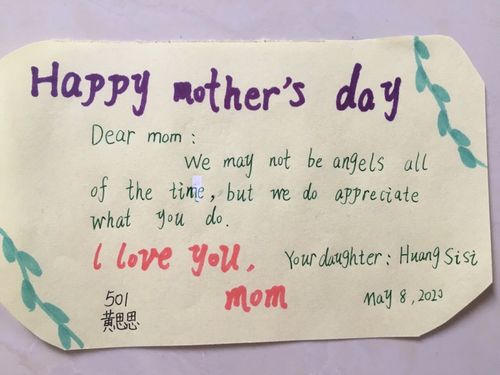 Happy mother's day
Dear mom :
We may not be angels all
of the time, but we do appreciate
what you do.
I love you,
mom
Your daughter : Huang Sisi
May 8, 2020
501
黄思思